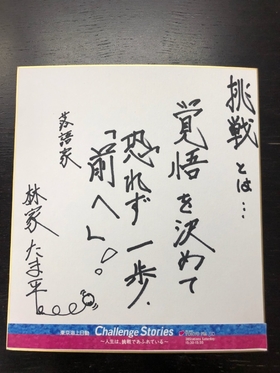 挑戦とは…
覚悟を決めて
恐れず一歩、
「前へ」!
落語家
林家たま平
東京海上日動 Challenge Stories
〜人生は、挑戦であふれている〜